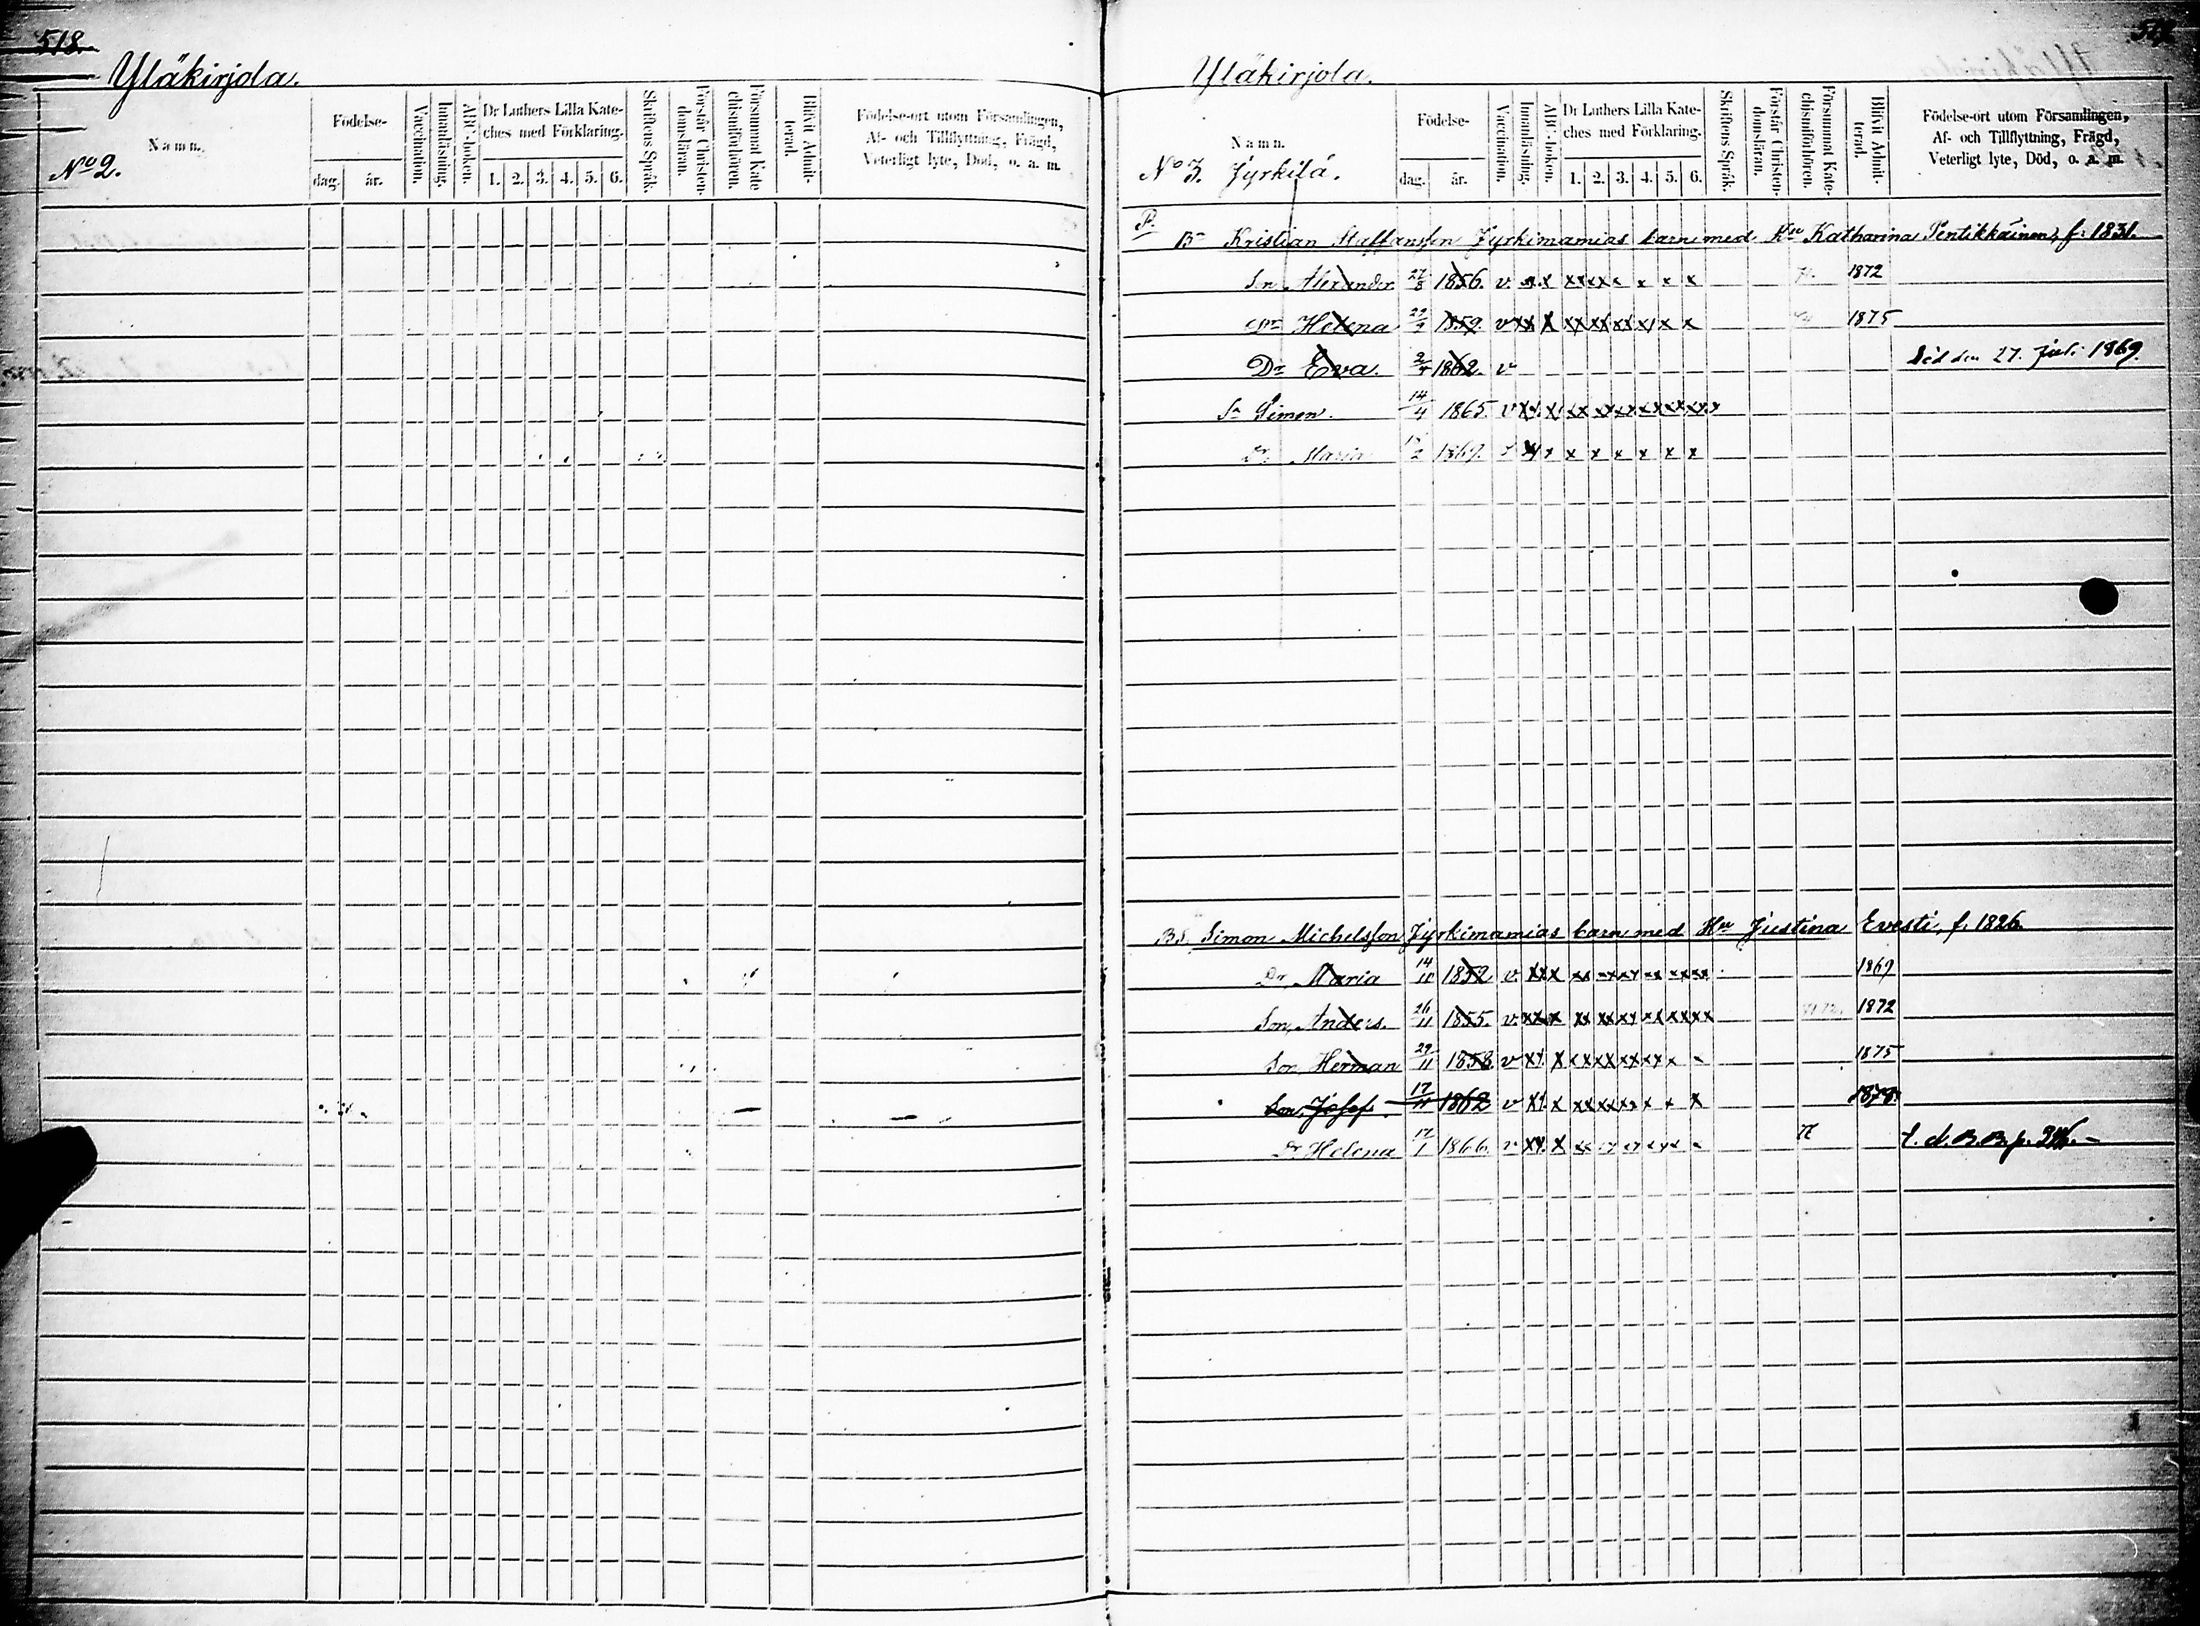 518.
Yläkirjola.
Namn.
No 2.
Födelse-
dag. år.
Vaccination.
Innanläsning.
ABC-boken.
Dr Luthers Lilla Kate-
ches med Förklaring.
1. 2. 3. 4. 5. 6.
Skriftens Språk.
Förstår Christen-
domsläran.
Försummat Kate
chismiförhören.
Blifvit Admit-
terad.
Födelse-ort utom Församlingen,
Af- och Tillflyttning, Frägd,
Veterligt lyte, Död, o. a. m.
Yläkirjola.
Namn.
No 3. Jyrkilä.
Födelse-
dag. år.
Vaccination.
Innanläsning.
ABC-boken.
Dr Luthers Lilla Kate-
ches med Förklaring.
1. 2. 3. 4. 5. 6.
Skriftens Språk.
Förstår Christen-
domsläran.
Försummat Kate-
chismiförhören.
Blifvit Admit-
terad.
Födelse-ort utom Församlingen,
Af- och Tillflyttning, Frägd,
Veterligt lyte, Död, o. a. m.
Kristian Staffansson Jyrkimamias barn med Hu Katharina Pentikkäinen, f. 1831.
Sn Alexander 27/8 1856. v. x x x x x x x x x 1872
Dr Helena 1859. v xx x xx xx xx xx x x 1875
Dr Eva. 1862. v Död den 27. Juli 1869.
Sn Simon. 14/4 1865. v xx x xx xx xx xx xx xx
Dr Maria 1869. x x x x x x x
BS. Simon Michelsson Jyrkimamias barn med Hu Justina Evesti, f. 1826.
Dr Maria 14/11 1852 v xx x xx xx xx xx xx xx 1869
Son, Anders. 26/11 1855. v. xx x xx xx xx xx xx xx 1872
Son Herman 29/11 1858. v xx x xx xx xx xx x 1875
Son, Josef 17/11 1862 v xx x xx xx xx x x x 1878.
Dr Helena 17/1 1866. v xx x xx xx xx xx